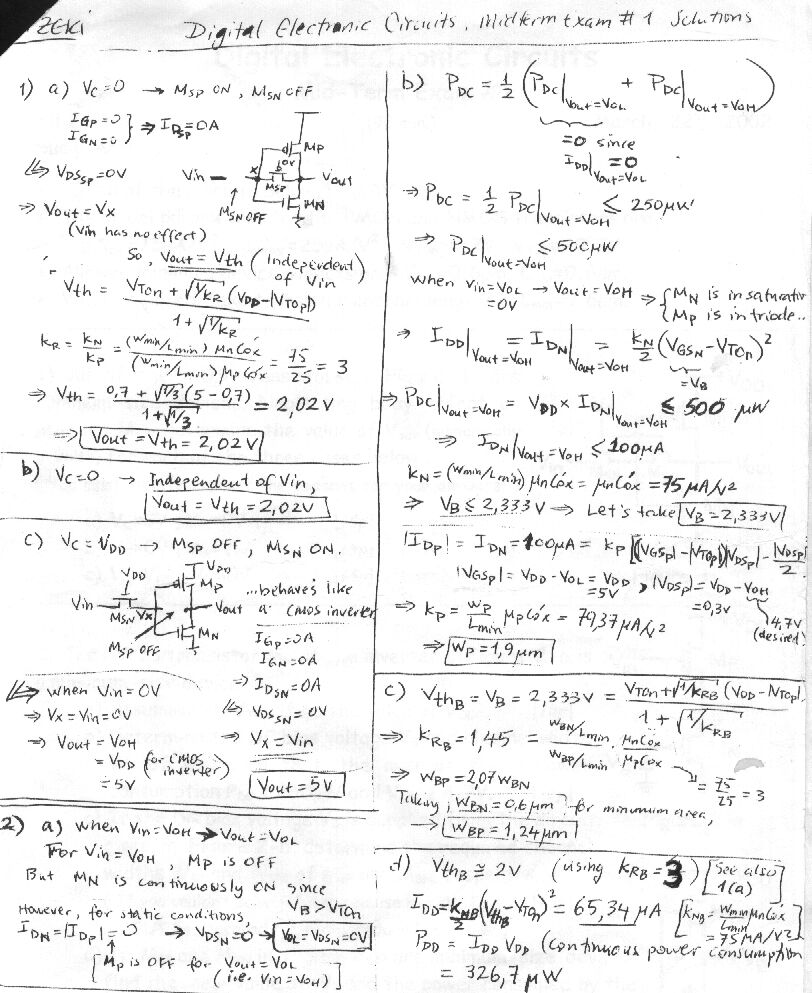 ZEKİ
Digital Electronic Circuits, Midterm Exam #1 Solutions
1) a) VC=0 → MSP ON, MSN OFF
IGP=0
IGN=0 } ⇒ IDSP=0A
↳ VDSSP=0V
⇒ Vout=VX
(Vin has no effect)
MP
0V
Vin
X
MSP
Vout
MSN OFF
MN
So, Vout=Vth (Independent of Vin)
Vth = (VTOn + √(1/kR) (VDD-|VTOp|)) / (1+√(1/kR))
kR = kN/kP = ((Wmin/Lmin) μnCóx) / ((Wmin/Lmin) μpCóx) = 75/25 = 3
⇒ Vth = (0,7 + √(1/3) (5-0,7)) / (1+√(1/3)) = 2,02V
⇒ Vout = Vth = 2,02V
b) VC=0 → Independent of Vin,
Vout = Vth = 2,02V
c) VC=VDD → MSP OFF, MSN ON.
VDD
VDD
MP
Vin
MSN
VX
Vout
MN
MSP OFF
...behaves like
a CMOS inverter
IGP=0A
IGN=0A
⇒ IDSN=0A
↳ VDSSN=0V
⇒ VX=Vin
↳ when Vin=0V
⇒ VX=Vin=0V
⇒ Vout=VOH
=VDD (for CMOS inverter)
=5V
Vout=5V
2) a) when Vin=VOH → Vout=VOL
For Vin=VOH, MP is OFF
But MN is continuously ON since
VB>VTOn
However, for static conditions,
IDN=|IDP|=0 → VDSN=0 → VOL=VDSN=0V
[MP is OFF for Vout=VOL
(i.e. Vin=VOH)]
b) PDC = 1/2 (PDC|Vout=VOL + PDC|Vout=VOH)
=0 since
IDD|Vout=VOL =0
⇒ PDC = 1/2 PDC|Vout=VOH ≤ 250μW
⇒ PDC|Vout=VOH ≤ 500μW
when Vin=VOL → Vout=VOH ⇒ { MN is in saturation
=0V
MP is in triode..
⇒ IDD|Vout=VOH = IDN|Vout=VOH = kN/2 (VGSN-VTOn)²
=VB
⇒ PDC|Vout=VOH = VDD x IDN|Vout=VOH ≤ 500 μW
⇒ IDN|Vout=VOH ≤ 100μA
kN = (Wmin/Lmin) μnCóx = μnCóx = 75 μA/V²
⇒ VB ≤ 2,333V → Let's take VB=2,333V
|IDP| = IDN = 100μA = kP [(|VGSP|-|VTOP|)|VDSP| - |VDSP|/2
|VGSP| = VDD-VOL = VDD =5V, |VDSP| = VDD-VOH
=0,3V
4,7V
(desired)
⇒ kP = WP/Lmin μpCóx = 79,37μA/V²
⇒ WP=1,9μm
c) VthB = VB = 2,333V = (VTOn+√(1/kRB) (VDD-|VTOp|) / (1+√(1/kRB))
⇒ kRB = 1,45 = (WBN/Lmin)/(WBP/Lmin) . μnCóx/μpCóx
= 75/25 = 3
⇒ WBP = 2,07WBN
Taking WBN=0,6μm for minimum area,
→ WBP = 1,24μm
d) VthB ≅ 2V (using kRB=3) [See also 1(a)]
IDD = kNB/2 (VthB-VTOn)² = 65,34 μA [kNB = Wmin/Lmin μnCóx = 75μA/V²]
PDD = IDD VDD (continuous power consumption)
= 326,7 μW